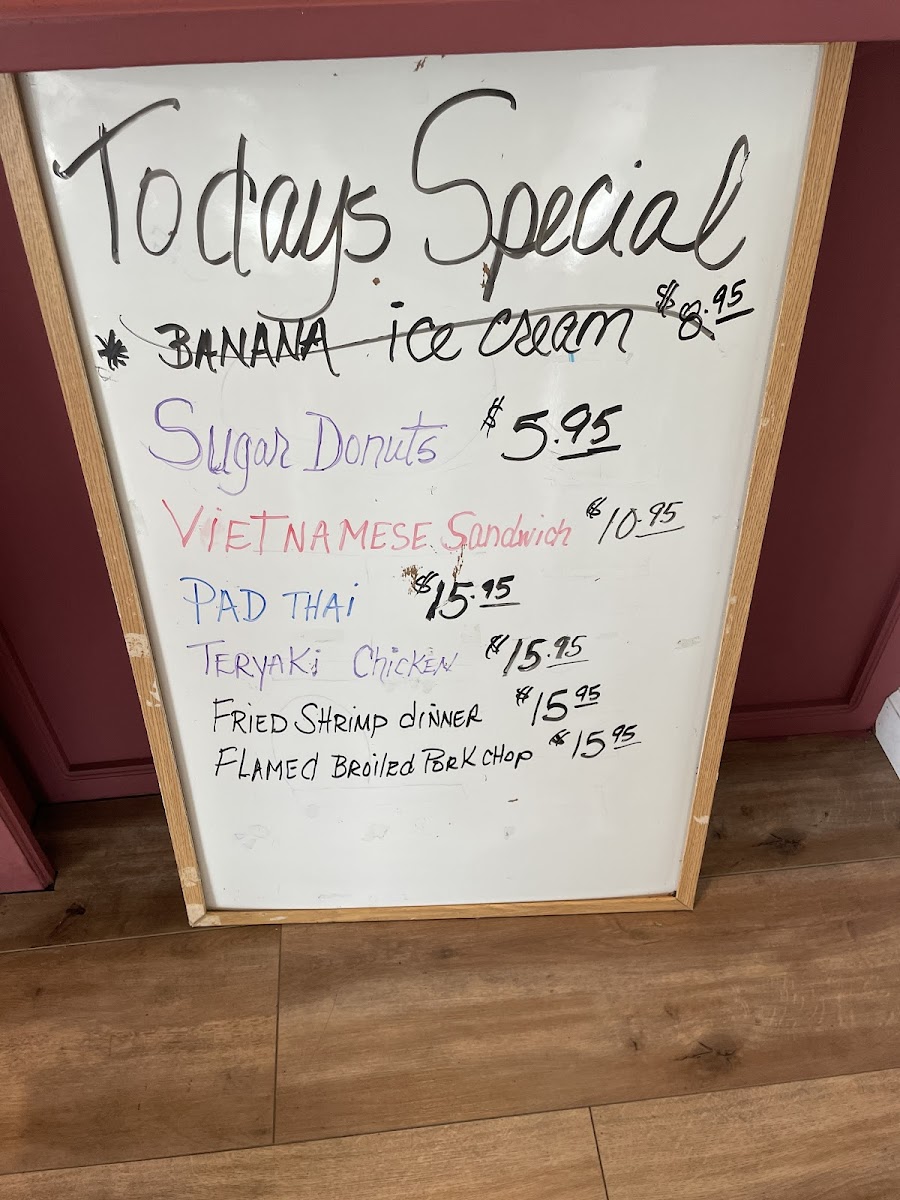 Todays Special
* BANANA ice cream $8.95
Sugar Donuts $5.95
VIETNAMESE Sandwich $10.95
PAD THAi $15.95
TERYAKi ChicKEN $15.95
FRIED SHRIMP diNNER $15.95
FLAMEd BRoilEd PoRK CHOP $15.95